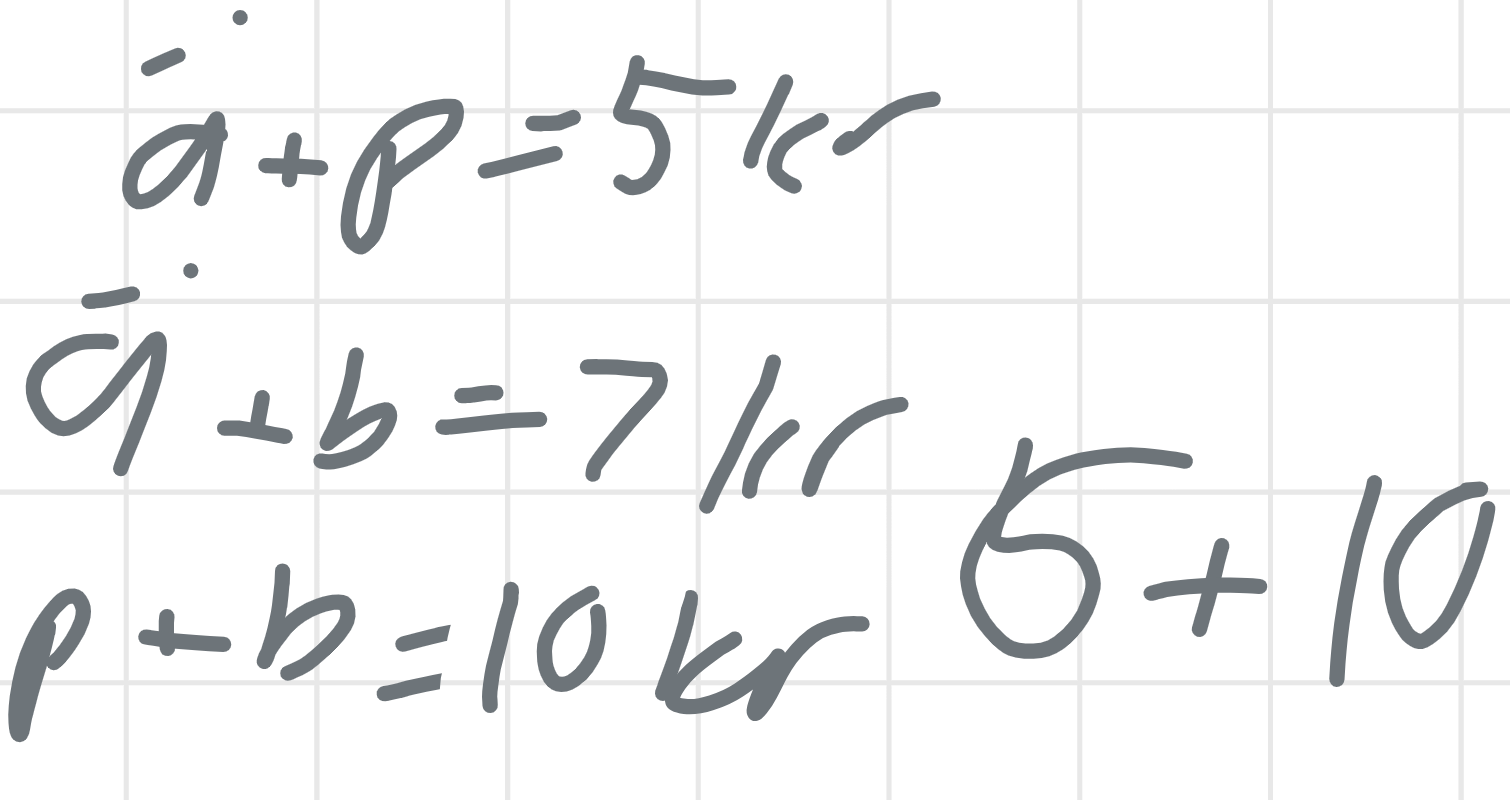 ä + p = 5 kr
ä + b = 7 kr
p + b = 10 kr
5 + 10